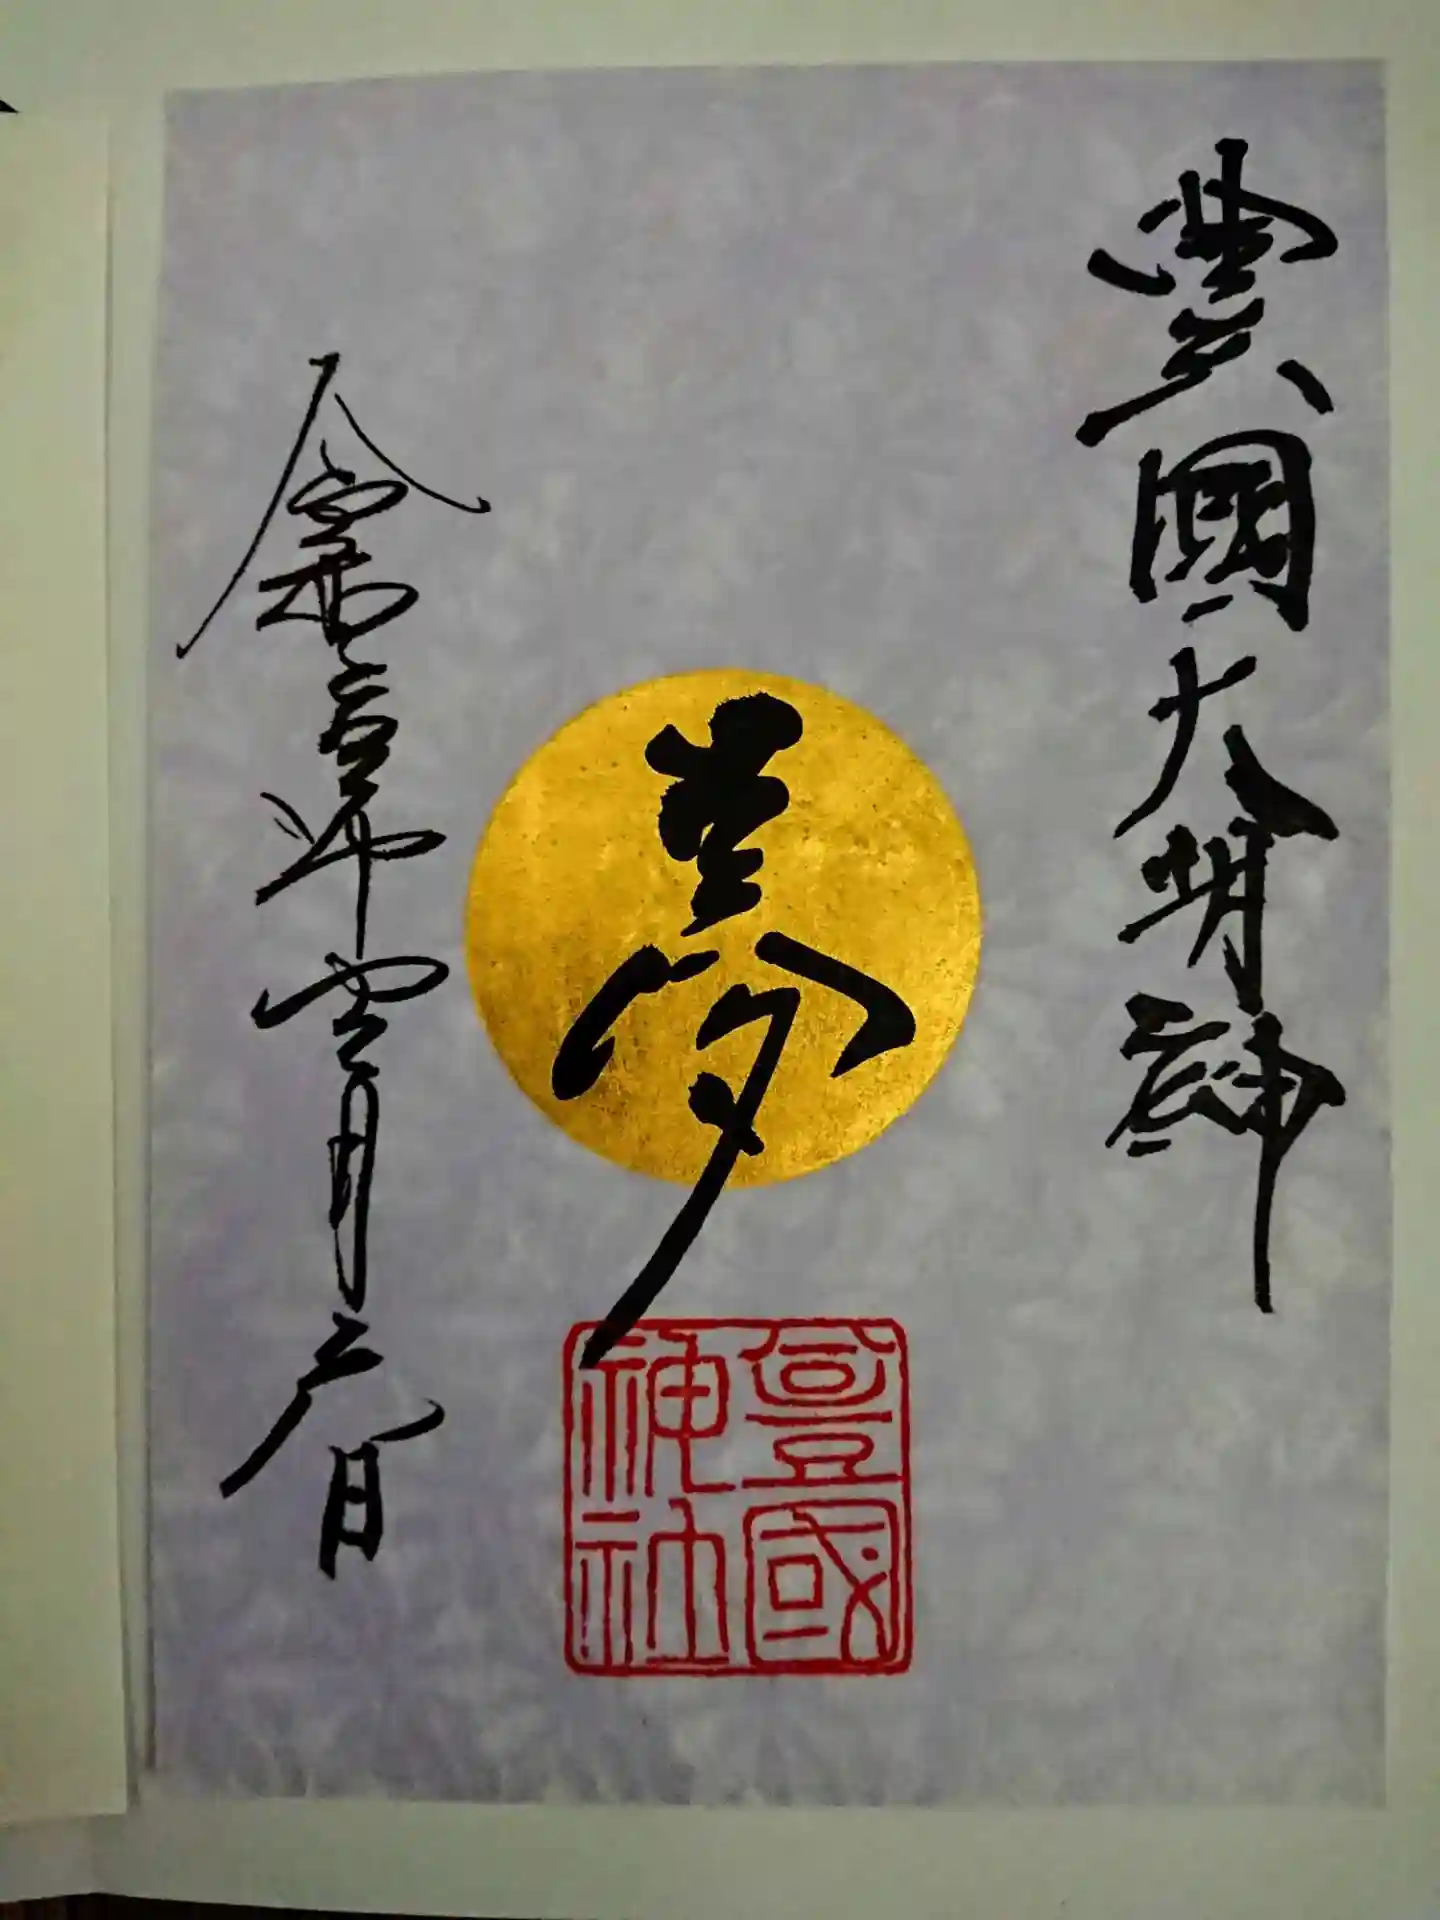 豊國大明神
夢
豊國
神社
令和 年 月 日